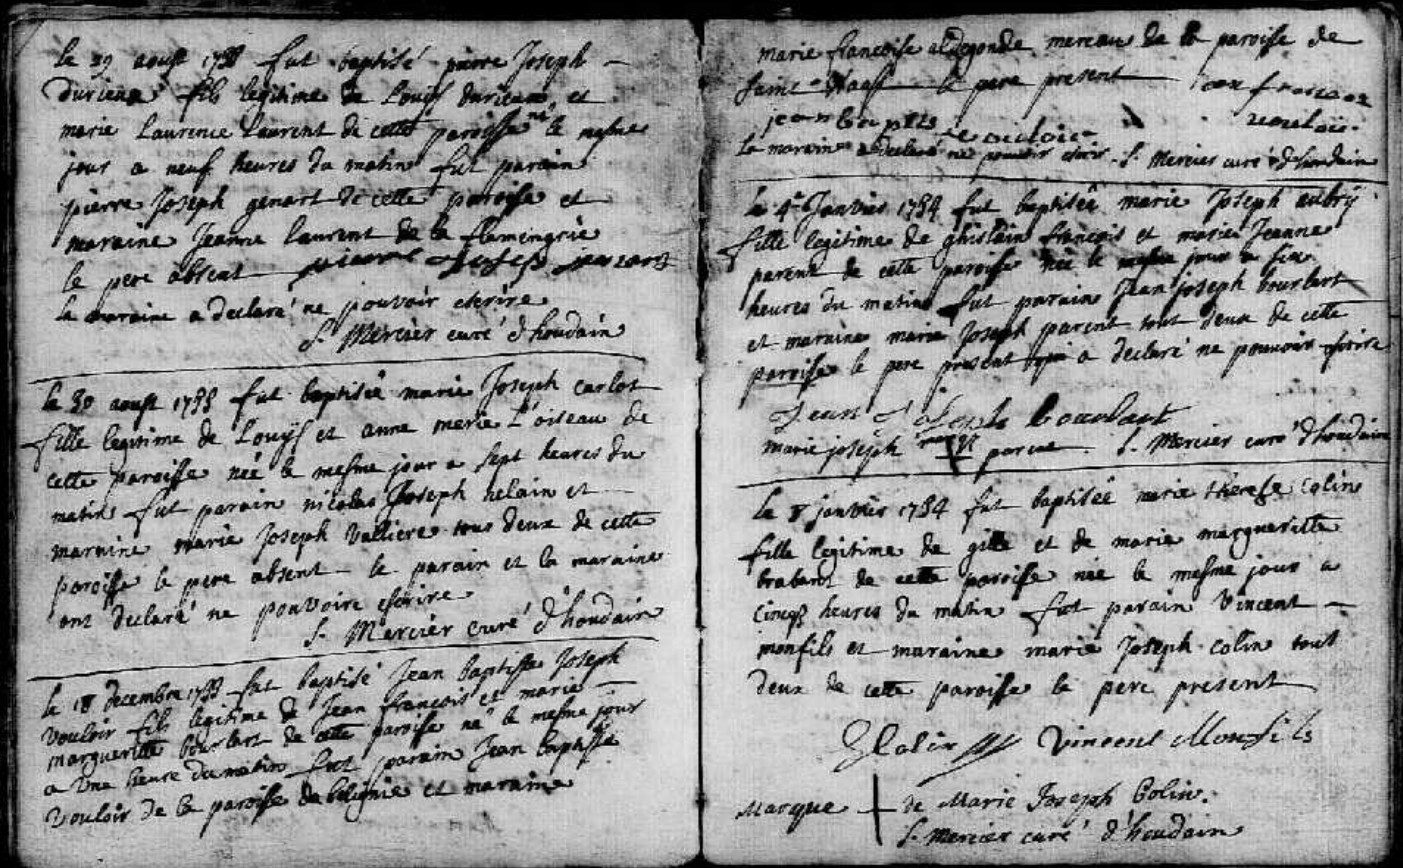 le 29 aoust 1753 fut baptisé pierre Joseph
durieux fils legitime de Louÿs durieux et
marie Laurence Laurent de cette paroisse né le mesme
jour a neuf heures du matin fut parain
pierre Joseph genart de cette paroisse et
maraine Jeanne laurent de la flamengrie
le pere absent pierre Joseph genart
la maraine a declaré ne pouvoir escrire
S. Mercier curé d'houdain
le 30 aoust 1753 fut baptisée marie Joseph carlot
fille legitime de Louÿs et anne marie L'oiseau de
cette paroisse née le mesme jour a sept heures du
matin fut parain nicolas Joseph helain et
maraine marie Joseph Valliere tous deux de cette
paroisse le pere absent le parain et la maraine
ont declaré ne pouvoire escrire
S. Mercier curé d'houdain
le 18 decembre 1753 fut baptisé Jean baptiste Joseph
vouloir fils legitime de Jean francois et marie
margueritte bourlart de cette paroisse né le mesme jour
a une heure du matin fut parain Jean baptiste
vouloir de la paroisse de et maraine
marie francoise aldegonde mereau de la paroisse de
Saint Waast le pere present Jean francois
jean baptis vouloir
la maraine a declaré ne pouvoir escrire S. Mercier curé d'houdain
le 4e Janvier 1754 fut baptisée marie Joseph aubrÿ
fille legitime de ghislain francois et marie Jeanne
parent de cette paroisse née le mesme jour a six
heures du matin fut parain Jean joseph bourlart
et maraine marie Joseph parent tout deux de cette
paroisse le pere present qui a declaré ne pouvoir escrire
Jean Joseph bourlart
marie joseph parent S. Mercier curé d'houdain
le 8 janvier 1754 fut baptisée marie therese Colin
fille legitime de gille et de marie margueritte
brabant de cette paroisse née le mesme jour a
cincq heures du matin fut parain Vincent
monfils et maraine marie Joseph colin tout
deux de cette paroisse le pere present
G Colin Vincent Monfils
Marque de Marie Joseph Colin.
S. Mercier curé d'houdain